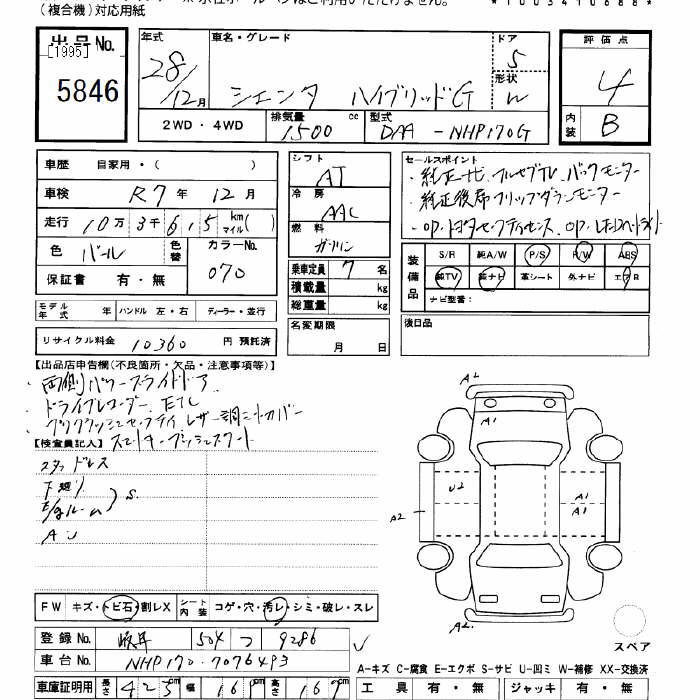 (複合機)対応用紙
*1003410688*
出品No.
[1995]
5846
年式
28/12月
車名・グレード
シエンタ ハイブリッドG
ドア
5
形状
W
評価点
4
内装
B
2WD・4WD
排気量
1500 cc
型式
DAA-NHP170G
車歴 自家用・( )
車検 R7年 12月
走行 10万3千615 km マイル( )
色 パール
色替
カラーNo.
070
保証書 有・無
シフト
AT
冷房
AAC
燃料
ガソリン
乗車定員 7 名
積載量 kg
総重量 kg
名変期限
月 日
セールスポイント
・純正ナビ フルセグTV バックモニター
・純正後席フリップダウンモニター
・OP.トヨタセーフティセンス OP.LEDヘッドライト
装備品
S/R 純A/W P/S P/W ABS
純TV 純ナビ 革シート 外ナビ エアB
ナビ型番:
後日品
モデル年式 ハンドル 左・右 ディーラー・並行
リサイクル料金 10360 円 預託済
【出品店申告欄(不良箇所・欠品・注意事項等)】
・両側パワースライドドア
・ドライブレコーダー、ETC
レザー調シートカバー
【検査員記入】 スマートキー プッシュスタート
スタッドレス
下廻り
S.
FW キズ・トビ石・割レX シート内装 コゲ・穴・汚レ・シミ・破レ・スレ
登録No. 岐阜 504 つ 9286
車台No. NHP170-7076493
車庫証明用 長さ 423 cm 幅 169 cm 高さ 167 cm
A2
A1
U2
A1
A1
A2
A2
スペア
A-キズ C-腐食 E-エクボ S-サビ U-凹ミ W-補修 XX-交換済
工具 有・無 ジャッキ 有・無